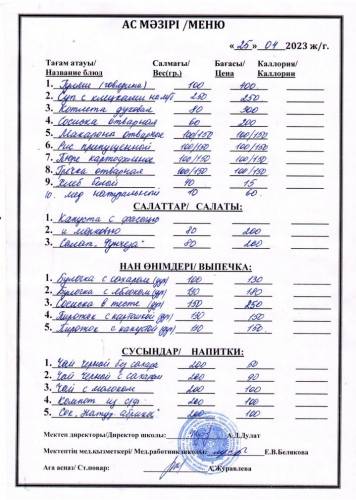 АС МӘЗІРІ /МЕНЮ
« 25 » 04 2023 ж/г.
Тағам атауы/ Салмағы/ Бағасы/ Каллория/
Название блюд Вес(гр.) Цена Каллории
1. (говядина) 100 400
2. Суп с клецками 250 250
3. Котлета духовая 80 300
4. Сосиска отварная 60 200
5. Макароны отварное 100/150 100/150
6. Рис припущенной 100/150 100/150
7. Пюре картофельное 100/150 100/150
8. Гречка отварная 100/150 100/150
9. Хлеб белой 40 15
10. мёд натуральный 10 60
САЛАТТАР/ САЛАТЫ:
1. Капуста с фасолью
2. и морковью 80 200
3. Салат "Фунчоза" 80 200
НАН ӨНІМДЕРІ/ ВЫПЕЧКА:
1. Булочка с сахаром 100 130
2. Булочка с яблоком 150 180
3. Сосиска в тесте 150 250
4. Пирожок с картошкой 150 150
5. Пирожок с капустой 150 150
СУСЫНДАР/ НАПИТКИ:
1. Чай черной без сахара 200 60
2. Чай черной с сахаром 200 90
3. Чай с молоком 200 100
4. Компот из с/ф 200 100
5. Сок 200 100
Мектеп директоры/Директор школы: А.Л.Дулат
Мектептің мед.қызметкері/ Мед.работник школы: Е.В.Белякова
Аға аспаз/ Ст.повар: А.Журавлева